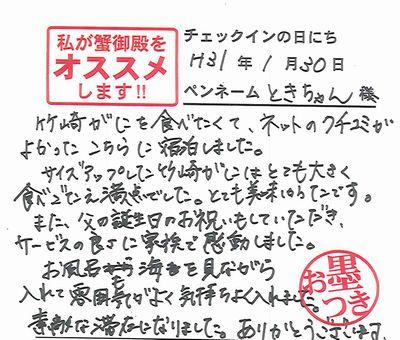 私が蟹御殿を
オススメ
します!!
チェックインの日にち
H31年1月30日
ペンネーム ときちゃん 様
竹崎がにを食べたくて、ネットのクチコミが
よかったこちらに宿泊しました。
サイズアップした竹崎がにはとても大きく
食べごたえ満点でした。とても美味しかったです。
また、父の誕生日のお祝いもしていただき、
サービスの良さに家族で感動しました。
お風呂も海を見ながら
入れて雰囲気がよく気持ちよく入れました。
素敵な滞在になりました。ありがとうございます。
お墨つき